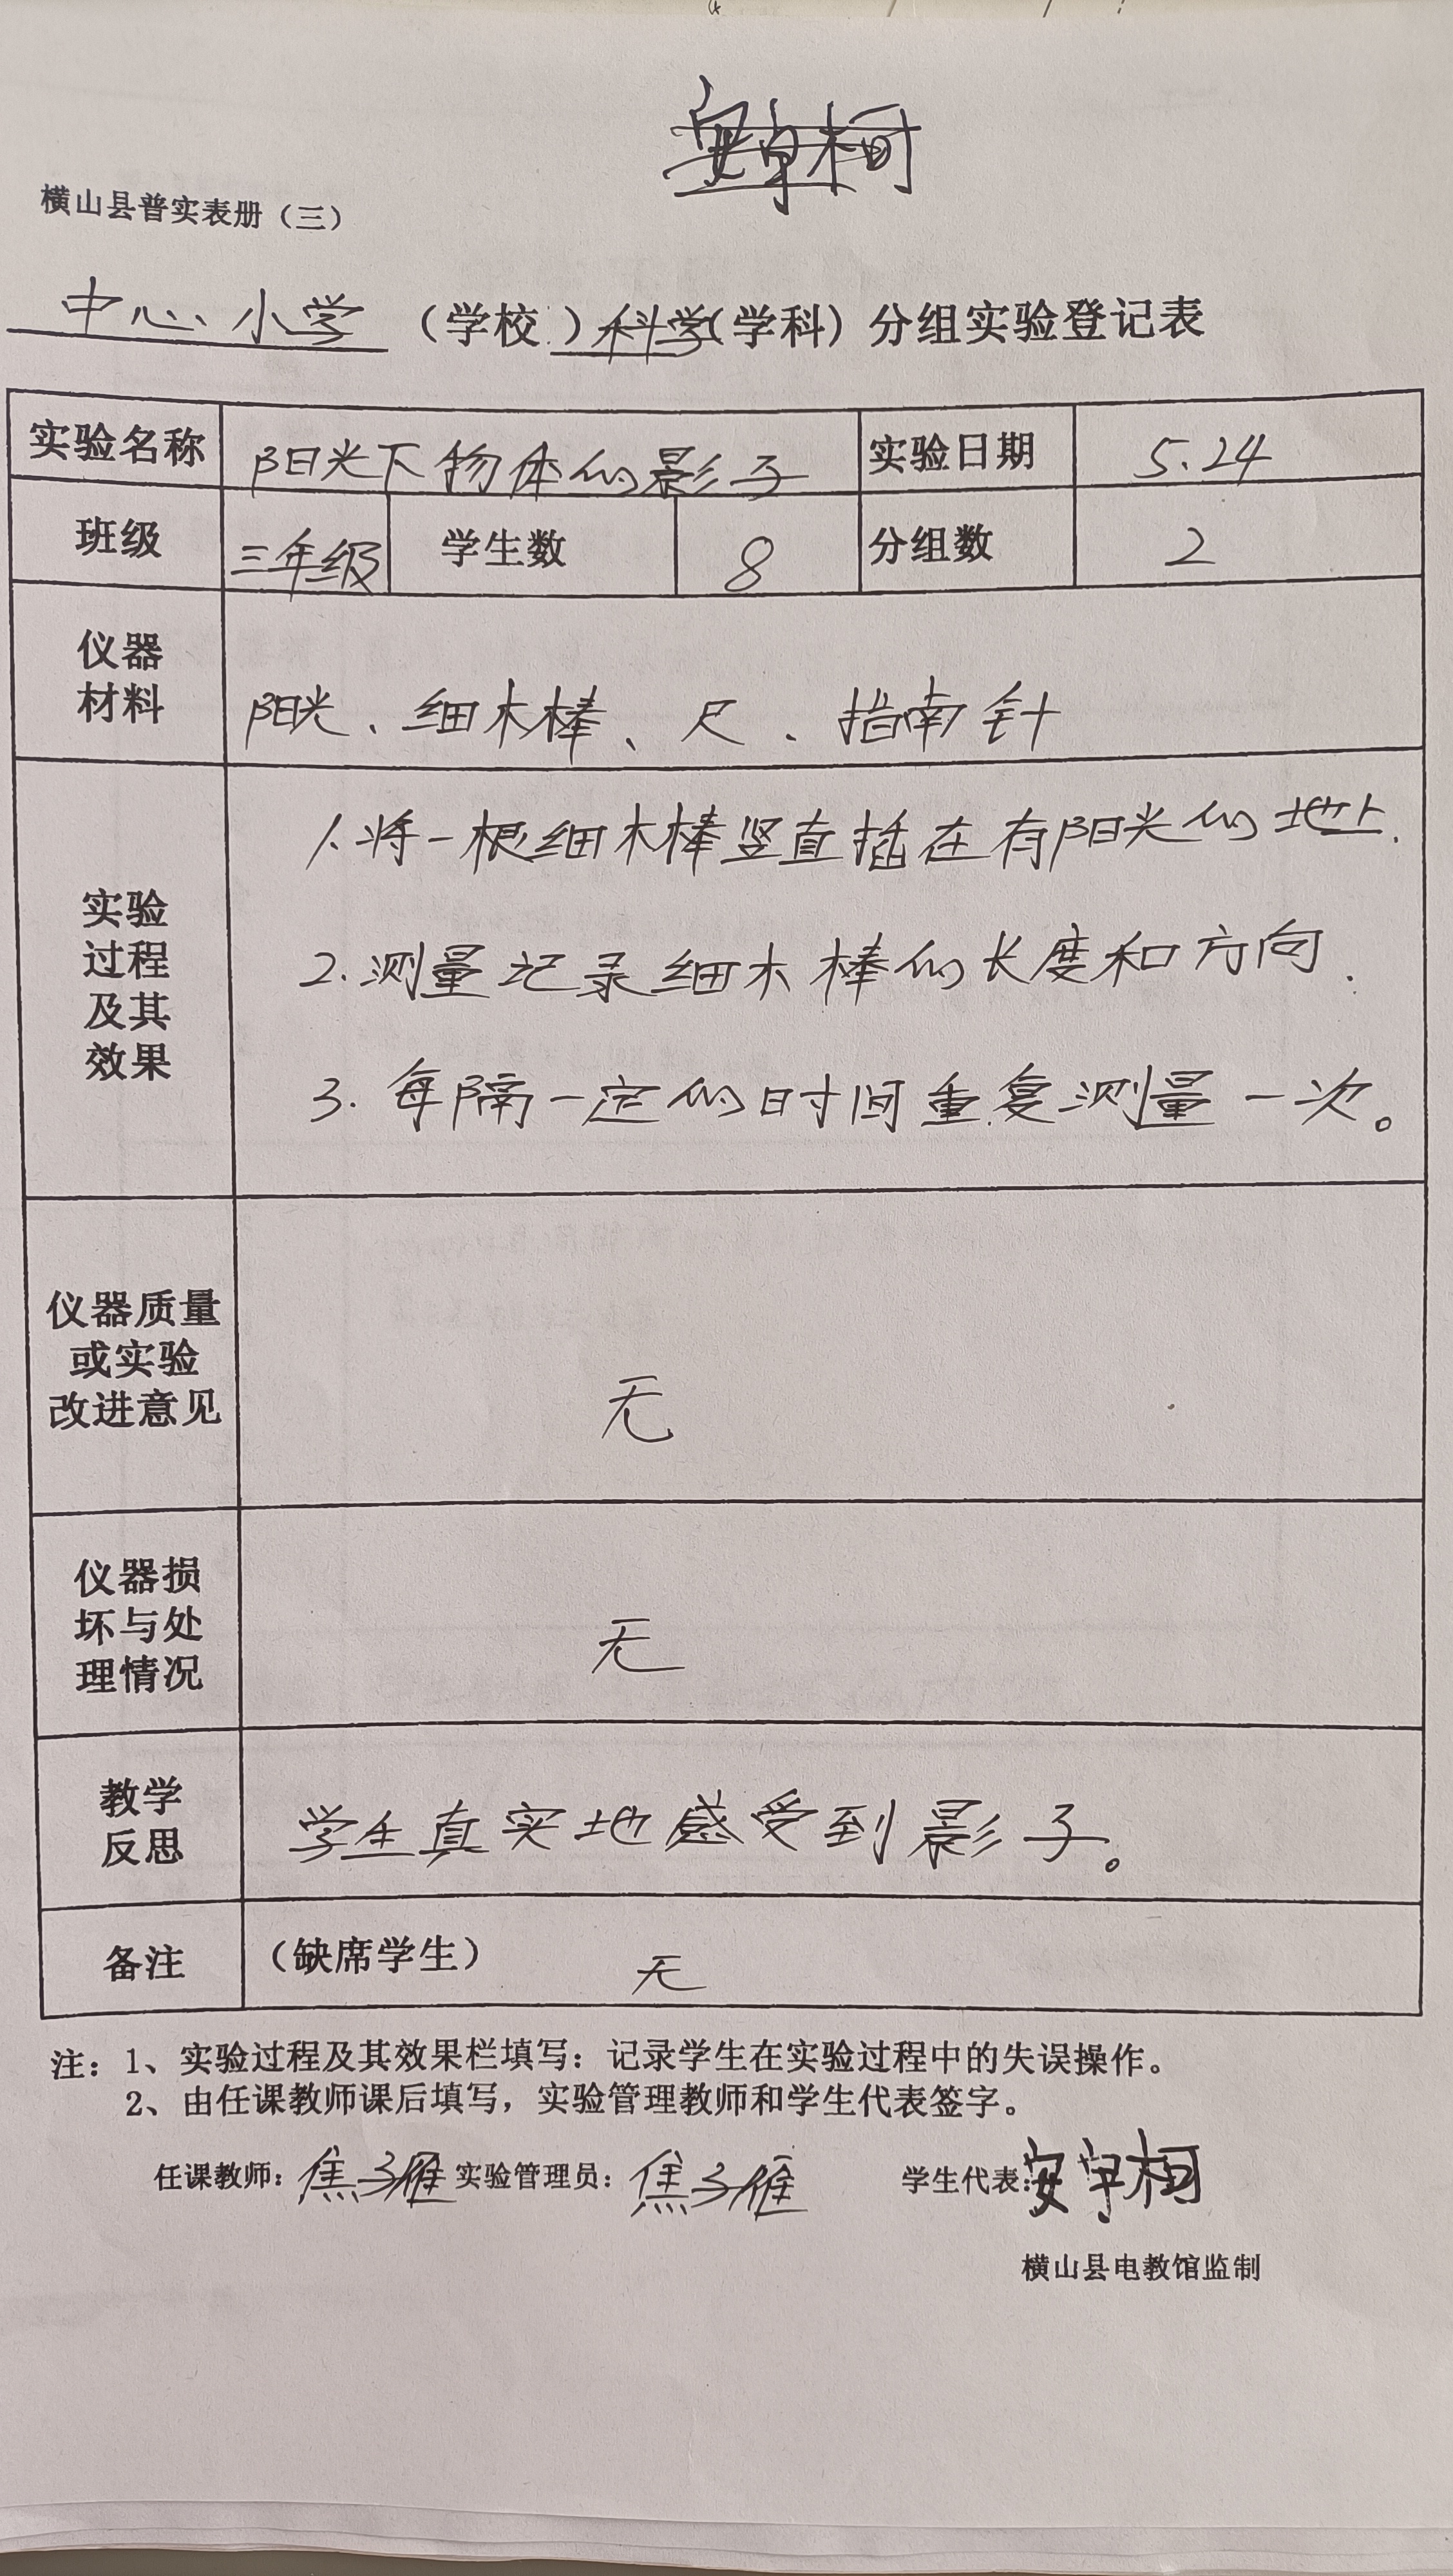 横山县普实表册（三）
中心小学（学校）科学（学科）分组实验登记表
实验名称 阳光下物体的影子 实验日期 5.24
班级 三年级 学生数 8 分组数 2
仪器
材料
阳光、细木棒、尺、指南针
实验
过程
及其
效果
1.将一根细木棒竖直插在有阳光的地上.
2.测量记录细木棒的长度和方向.
3.每隔一定的时间重复测量一次。
仪器质量
或实验
改进意见
无
仪器损
坏与处
理情况
无
教学
反思
学生真实地感受到影子。
备注 （缺席学生） 无
注：1、实验过程及其效果栏填写：记录学生在实验过程中的失误操作。
2、由任课教师课后填写，实验管理教师和学生代表签字。
任课教师：焦子雅 实验管理员：焦子雅 学生代表：安宇柯
横山县电教馆监制